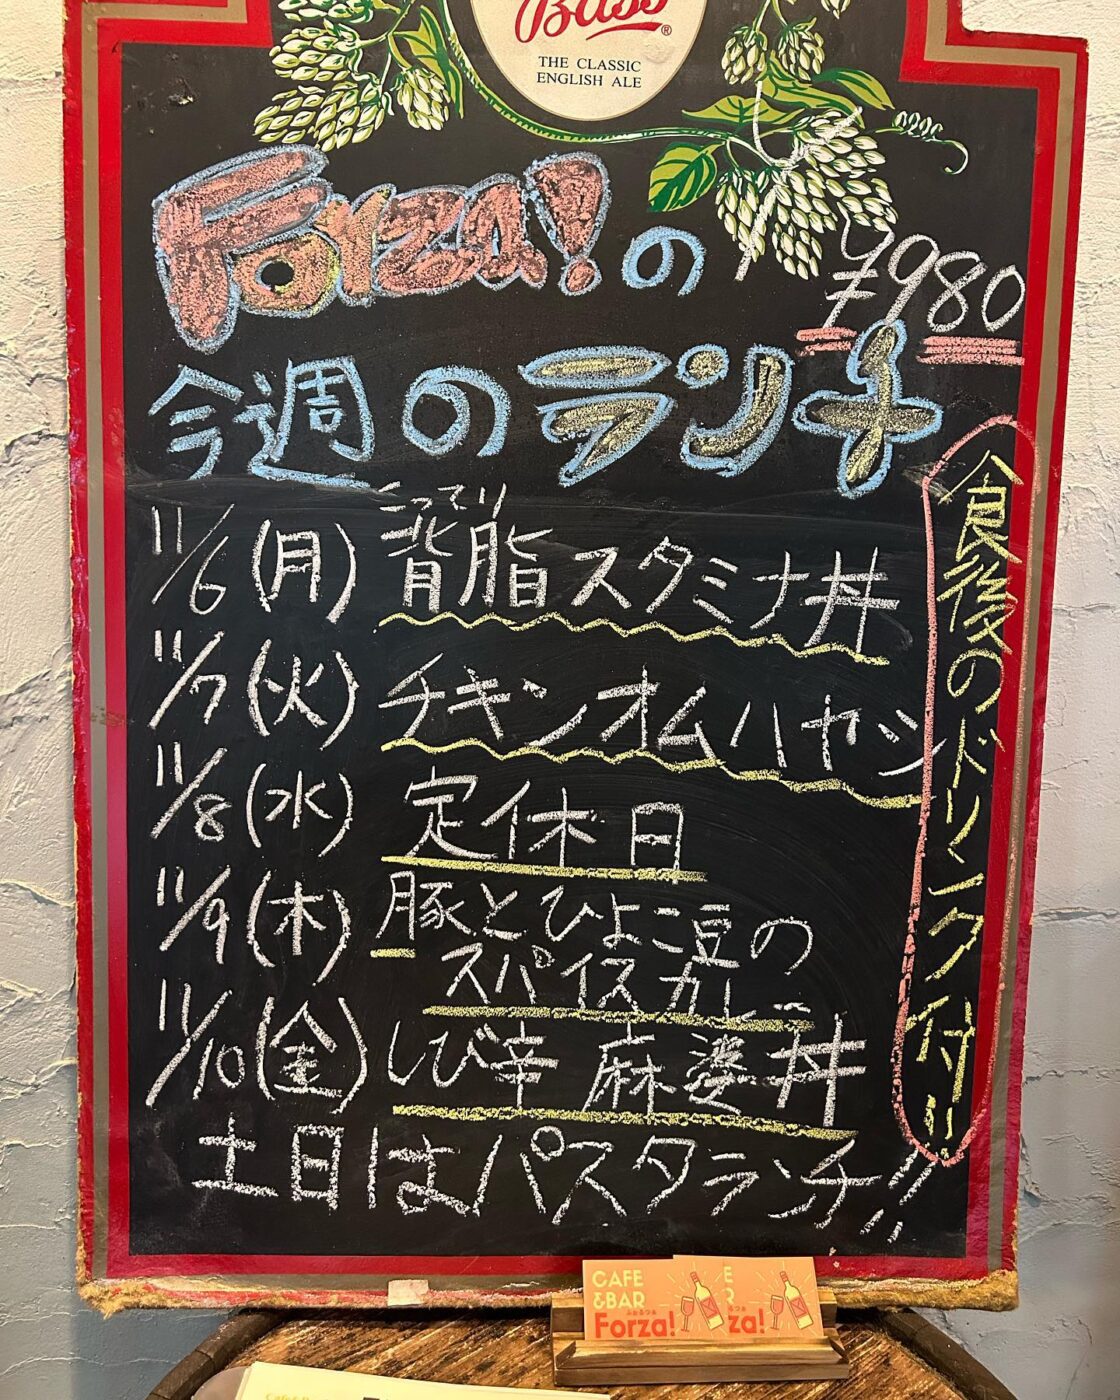 Bass®
THE CLASSIC
ENGLISH ALE
Forza!の
¥980
今週のランチ
11/6(月) こってり背脂スタミナ丼
11/7(火) チキンオムハヤシ
11/8(水) 定休日
11/9(木) 豚とひよこ豆の
スパイスカレー
11/10(金) しび辛麻婆丼
土日はパスタランチ!!
食後のドリンク付!!
CAFE
&BAR
Forza!
E
R
za!